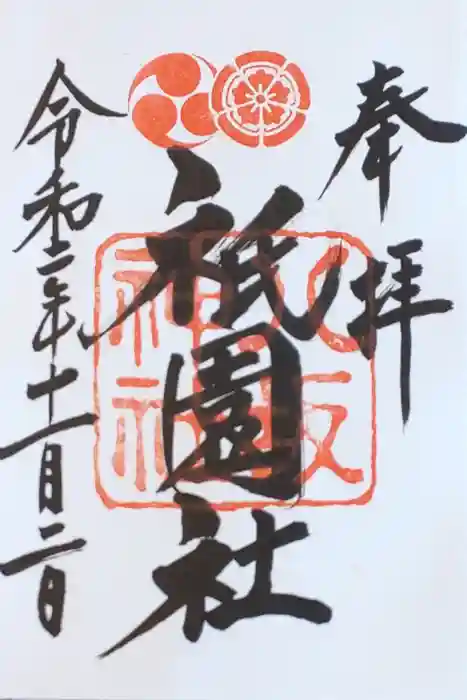 奉拝
八坂神社
祇園社
令和二年十一月二日